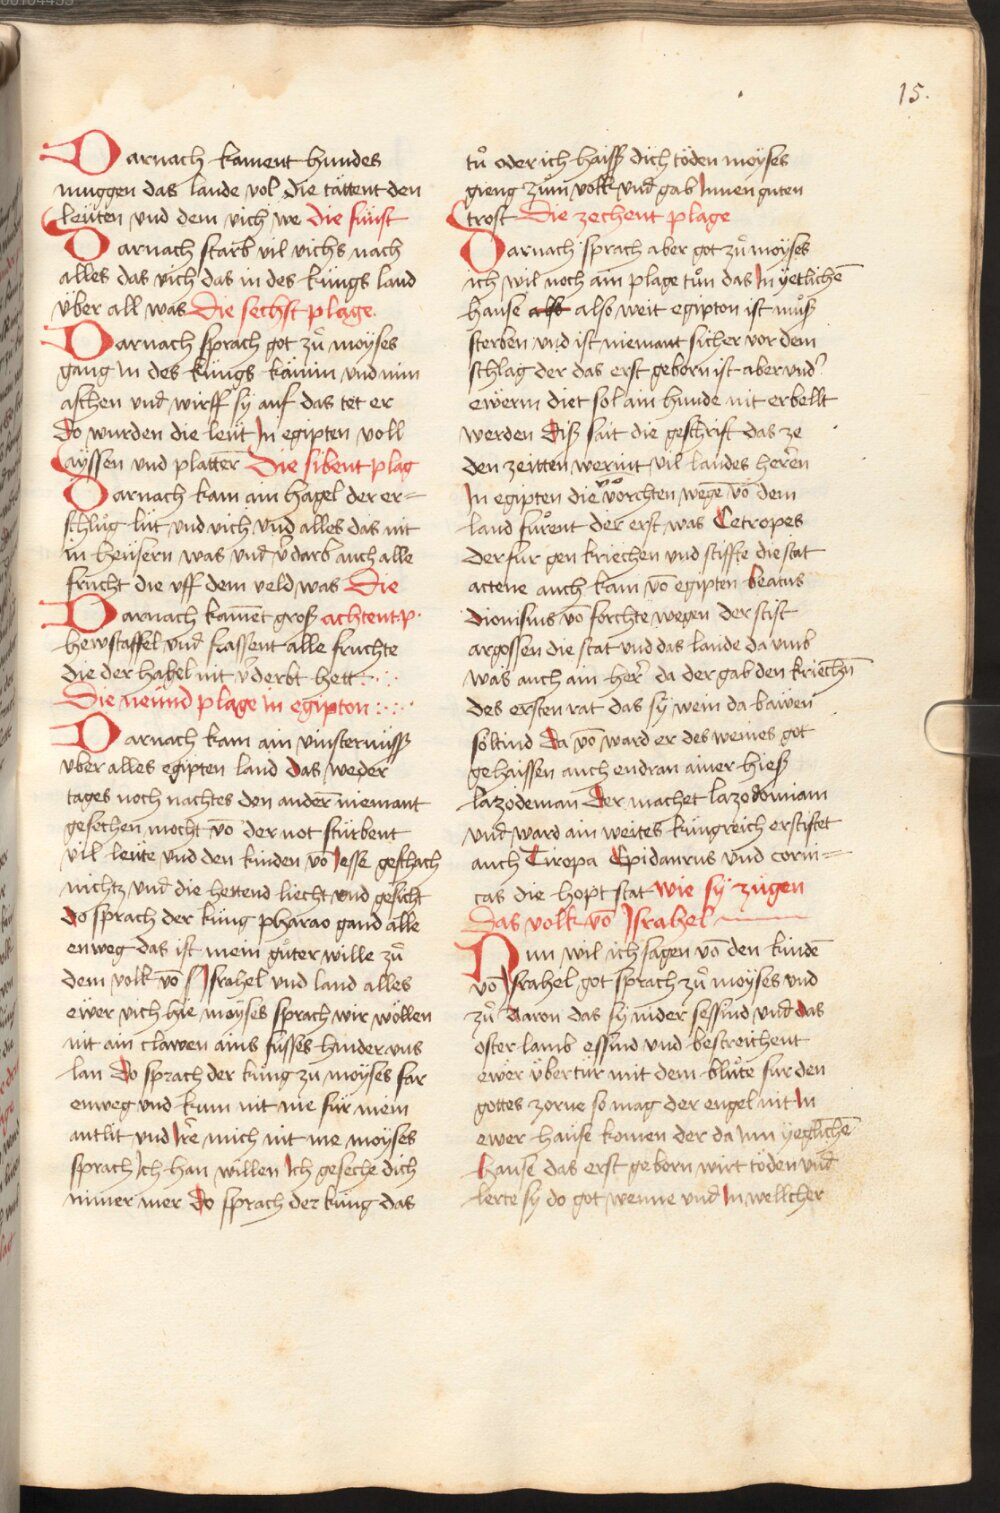 15.
Darnach kament hundes
muggen das lande vol die tättent den
leüten vnd dem vich we die fünft
Darnach starb vil vichs nach
alles das vich das in des küngs land
über all was Die sechst plage.
Darnach sprach got zů moyses
gang In des küngs kämin vnd nim
aschen vnd wirff sy auf das tet er
do wurden die leüt In egipten voll
ayssen vnd platter̄ Die sibent plag
Darnach kam ain hagel der er=
schlůg lüt vnd vich vnd alles das nit
in heüsern was vnd v̄darb auch alle
frucht die vff dem veld was Die
Darnach kamēt groß achtent p.
hewstaffel vnd frassent alle fruchte
die der hagel nit v̄derbt hett
Die neünd plage in egipton
Darnach kam ain vinsternuß
vber alles egipten land das weder
tages noch nachtes den ander̄ niemant
gesechen mocht vō der not sturbent
vil leüte vnd den kinden vō Jesse geschach
nichtz vnd die hettend liecht vnd gesicht
do sprach der küng pharao gand alle
enweg das ist mein gůter wille zů
dem volk vō Israhel vnd land alles
ewer vich hie moyses sprach wir wöllen
nit ain clawen ains fusses hinder vns
lan do sprach der küng zu moyses far
enweg vnd kum nit me für mein
antlit vnd Irr̄e mich nit me moyses
sprach Ich han willen Ich geseche dich
nimer mer do sprach der küng das
tů oder ich haiss dich töden moyses
gieng zům volk vnd gab Innen guten
trost Die zechent plage
Darnach sprach aber got zů moyses
ich wil noch ain plage tůn das In yetlichē
hause also weit egipton ist můß
sterben vnd ist niemant sicher vor dem
schlag der das erst geborn ist aber vnd̾
ewerm diet sol ain hunde nit erbellt
werden Diß sait die geschrift das ze
den zeitten werint vil landes herēn
In egipten die vorchten wegē vō dem
land fůrent der erst was Cetropes
der fur gen kriechen vnd stiffte die stat
actene auch kam vō egipten beatus
dionisius vō forchte wegen der stift
argossen die stat vnd das lande da vmb
was auch ain her̄ da der gab den kriechn̄
des ersten rat das sy wein da bawen
soltind da vō ward er des weines got
gehaissen auch endran ainer hieß
lazodeman der machet lazodomiam
vnd ward ain weites küngreich erstiftet
auch Cirepa Epidaurus vnd corin=
cas die hopt stat wie sy zugen
das volk vō Israhel
Nun wil ich sagen vō den kindē
vō Israhel got sprach zů moyses vnd
zů Aaron das sy nider sessind vnd das
oster lamb essind vnd bestreichent
ewer übertür mit dem blůte fur den
gottes zorne so mag der engel nit In
ewer hause komen der da Inn yegclichē
hause das erst geborn wirt töden vnd
lerte sy do got wenne vnd In wellcher